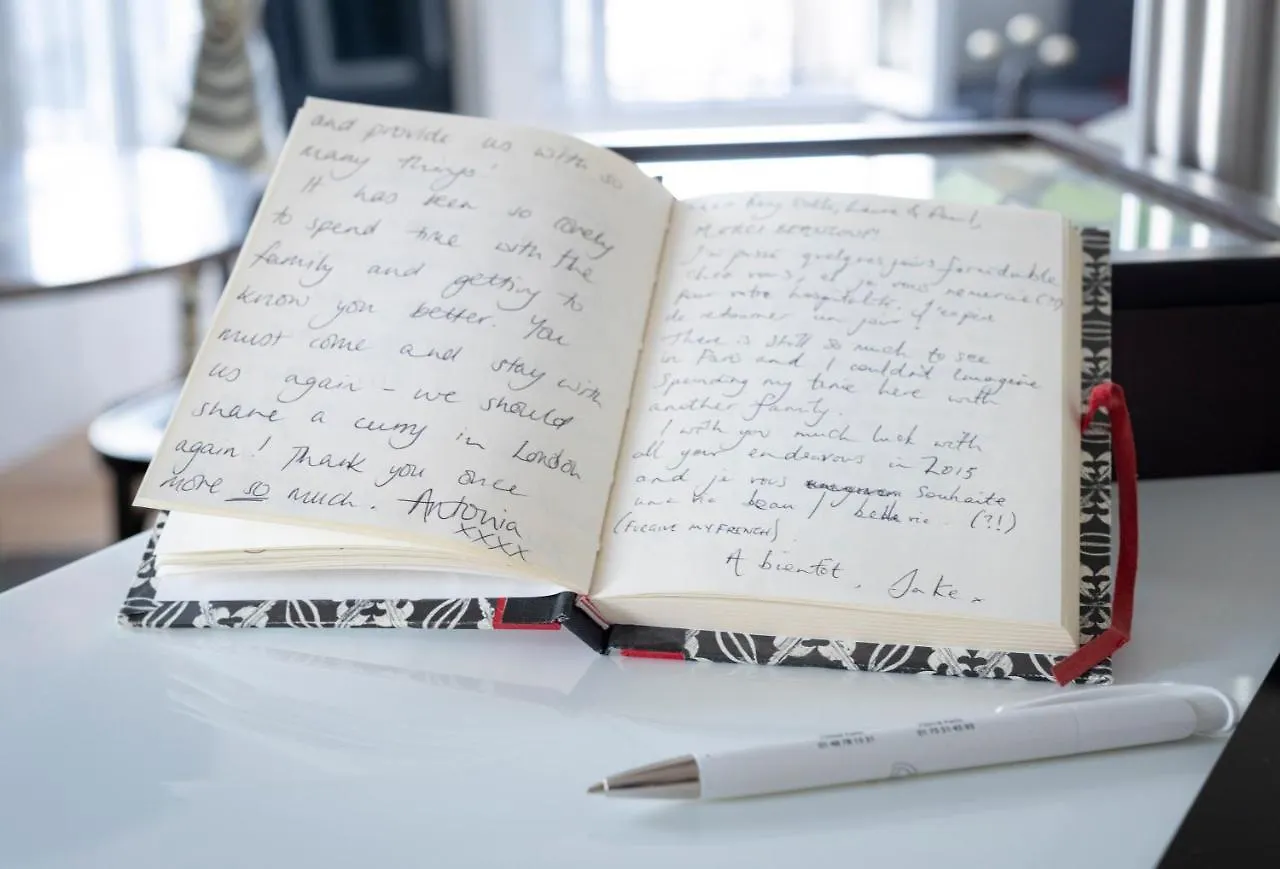 and provide us with so
many things!
It has been so lovely
to spend time with the
family and getting to
know you better. You
must come and stay with
us again - we should
share a curry in London
again! Thank you once
more so much. Antonia
xxxx
MERCI BEAUCOUP!
J'ai passé quelques jours formidable
chez vous, et je vous remercie (?!)
pour votre hospitalité. J'espère
de retourner un jour!
There is still so much to see
in Paris and I couldn't imagine
spending my time here with
another family.
I wish you much luck with
all your endeavours in 2015
and je vous souhaite
une vie beau / belle vie. (?!)
(FORGIVE MY FRENCH)
A bientot, Jake x